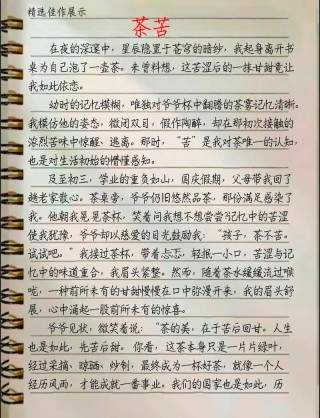 精选佳作展示
茶苦
在夜的深邃中，星辰隐匿于苍穹的暗纱，我起身离开书
桌为自己泡了一壶茶。未曾料想，这苦涩后的一抹甘甜竟让
我如此依恋。
幼时的记忆模糊，唯独对爷爷杯中翻腾的茶雾记忆清晰。
我模仿他的姿态，微闭双目，假作陶醉，却在那初次接触的
浓烈苦味中惊醒、逃离。那时，“苦”是我对茶唯一的认知，
也是对生活初始的懵懂感知。
及至初三，学业的重负如山，国庆假期，父母带我回了
趟老家散心。茶桌旁，爷爷仍旧悠然品茶，那份满足感染了
我。他朝我晃晃茶杯，笑着问我想不想尝尝?记忆中的苦涩
使我犹豫，爷爷却以慈爱的目光鼓励我：“孩子，茶不苦。
试试吧。”我接过茶杯，带着忐忑，轻抿一小口，苦涩与记
忆中的味道重合，我眉头紧蹙。然而，随着茶水缓缓流过喉
咙，一种前所未有的甘甜慢慢在口中弥漫开来，我的眉头舒
展，心中涌起一股前所未有的惊喜。
爷爷见状，微笑着说：“茶的美，在于苦后回甘。人生
也是如此，先苦后甜。你看，这茶本身只是一片片绿叶，
经过采摘、晾晒、炒制，最终成为一杯好茶，就像一个人
经历风雨，才能成就一番事业。我们的国家也是如此，历